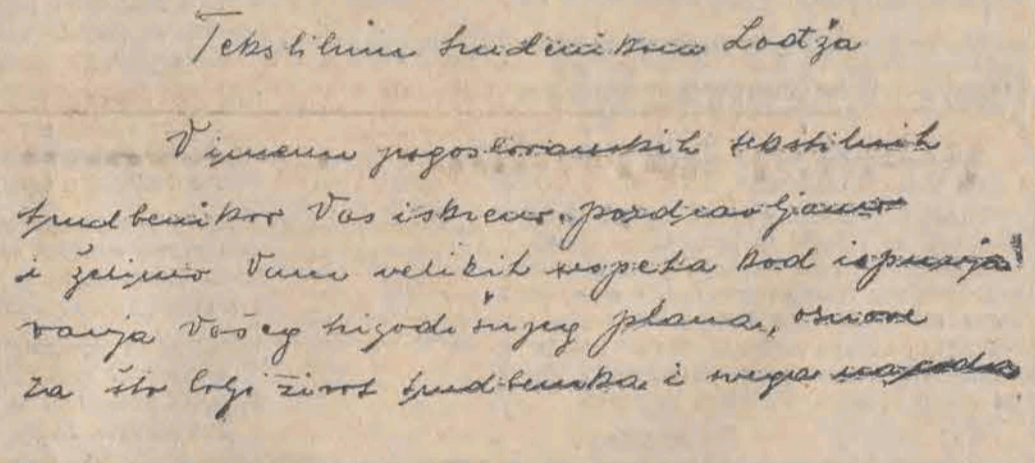 Tekstilnim trudenikom Lodža
V imenu jugoslovanskih tekstilnih
trudbenikov Vas iskreno pozdravljamo
i želimo Vam velikih uspeha kod ispunja
vanja Vašeg trigodišnjeg plana, osnove
za što bolji život trudbenika i svega naroda